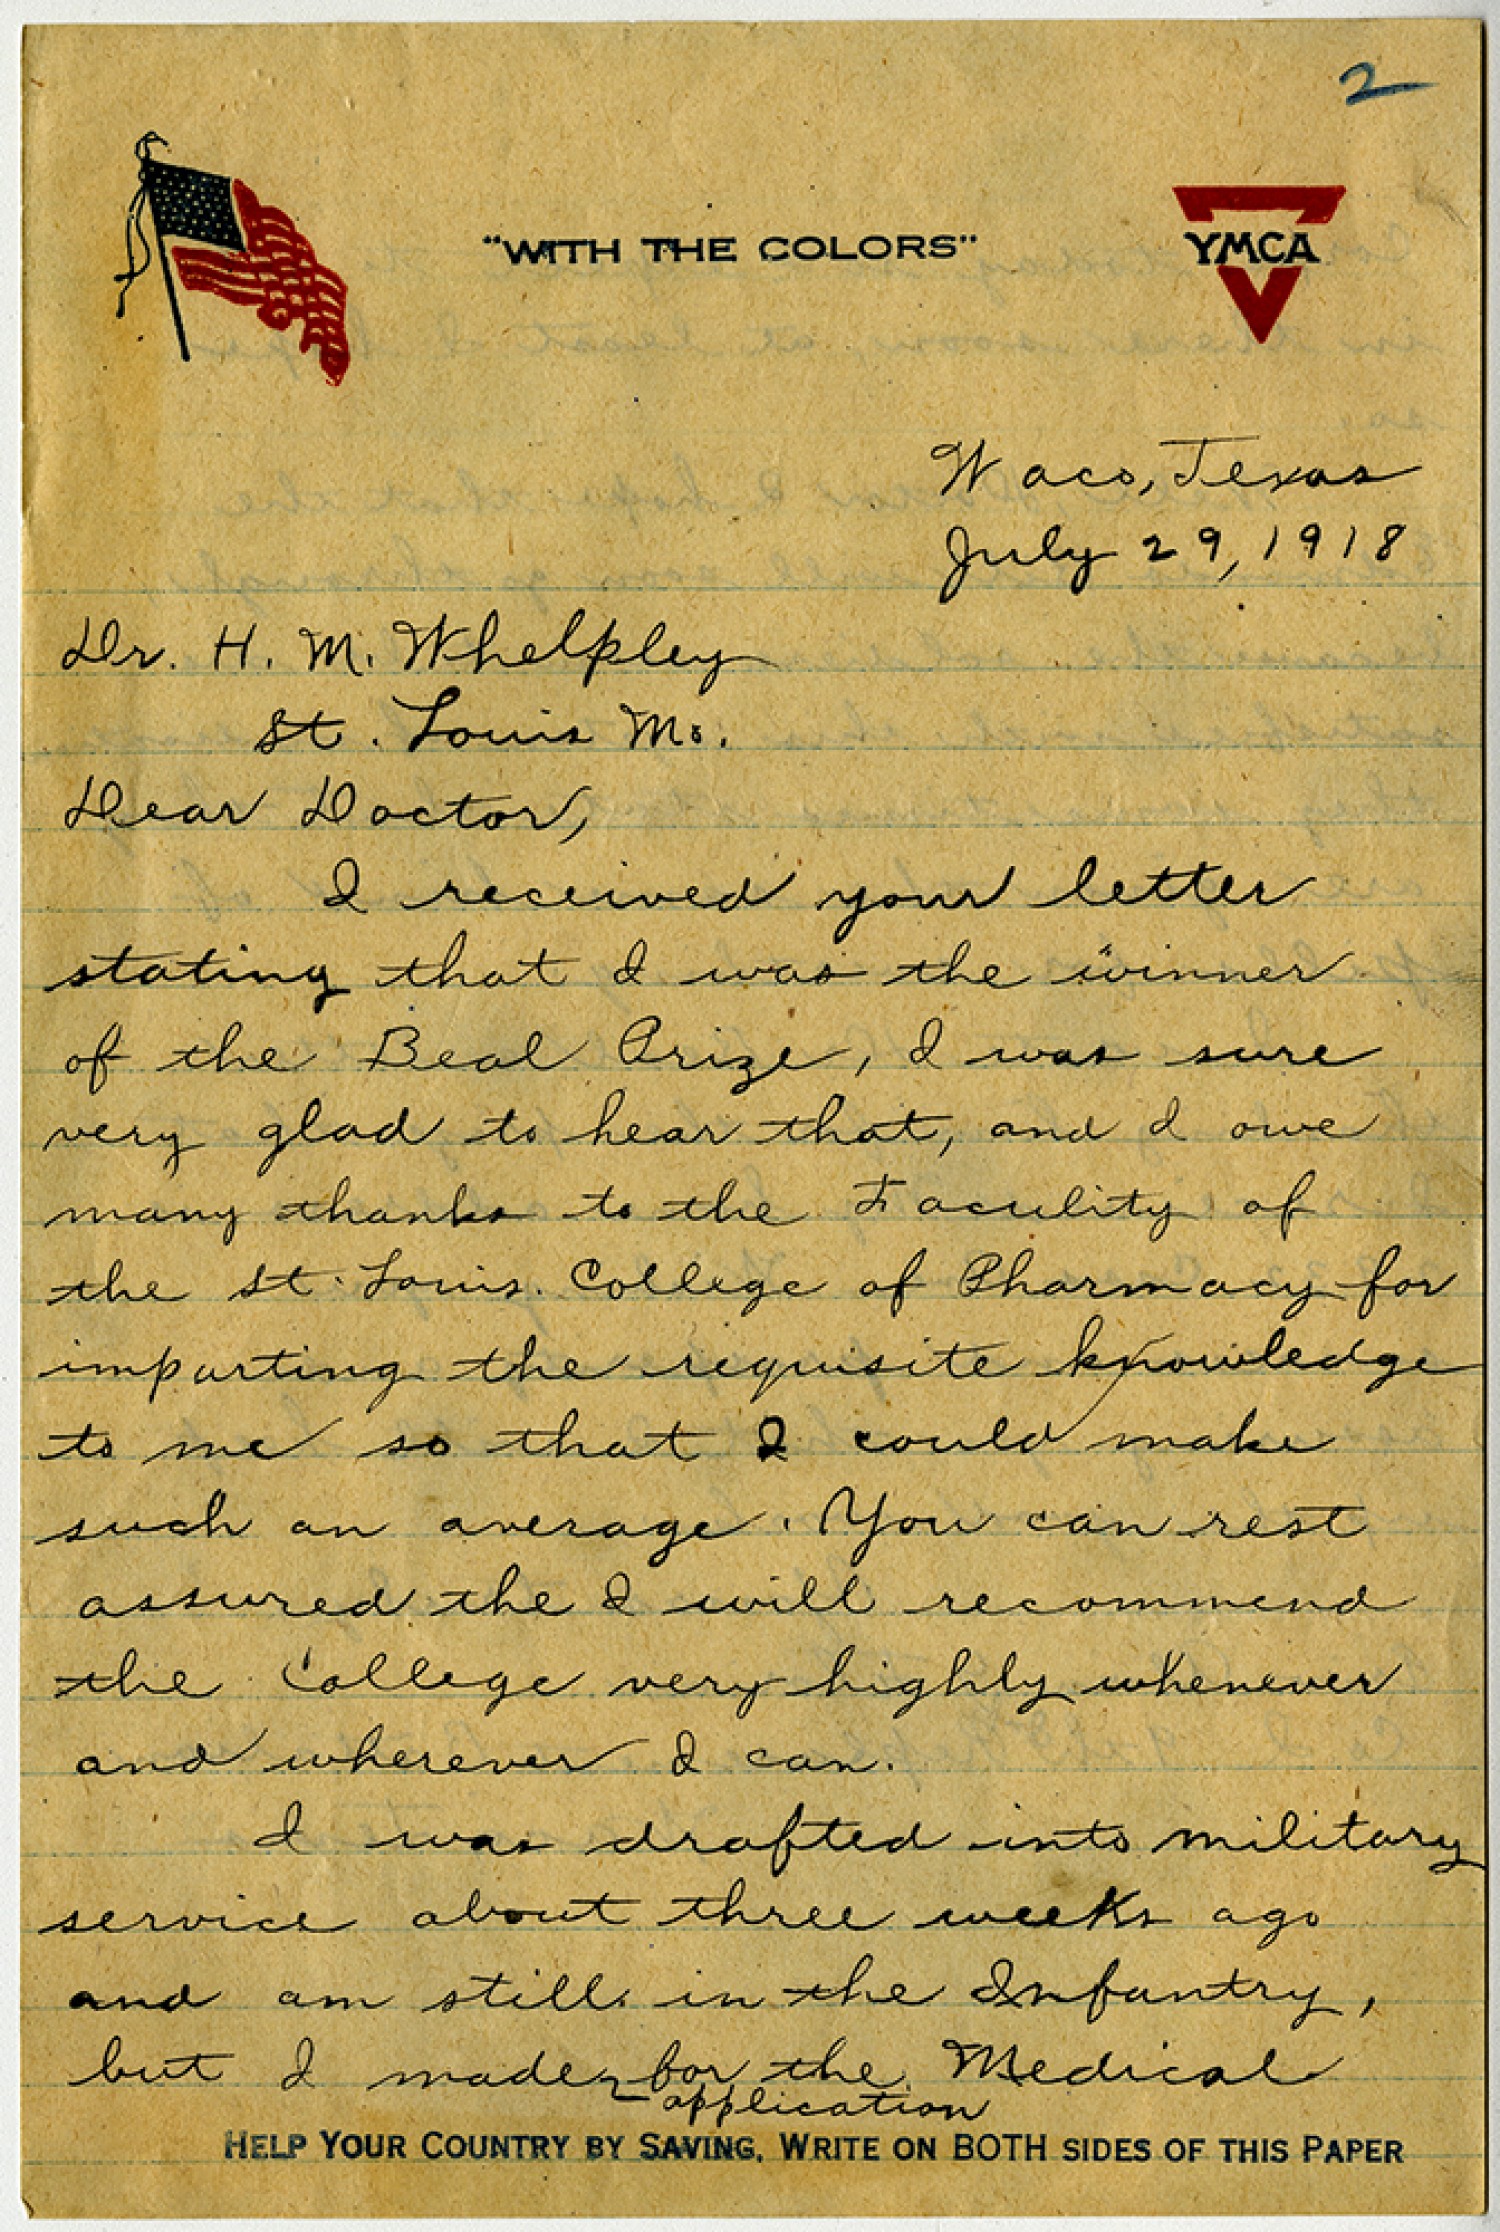 2
"WITH THE COLORS"
YMCA
Waco, Texas
July 29, 1918
Dr. H. M. Whelpley
St. Louis Mo.
Dear Doctor,
I received your letter
stating that I was the winner
of the Beal Prize, I was sure
very glad to hear that, and I owe
many thanks to the Faculity of
the St. Louis. College of Pharmacy for
imparting the requisite knowledge
to me so that I could make
such an average. You can rest
assured the I will recommend
the College very highly whenever
and wherever I can.
I was drafted into military
service about three weeks ago
and am still in the Infantry,
but I made for the Medical
application
HELP YOUR COUNTRY BY SAVING, WRITE ON BOTH SIDES OF THIS PAPER